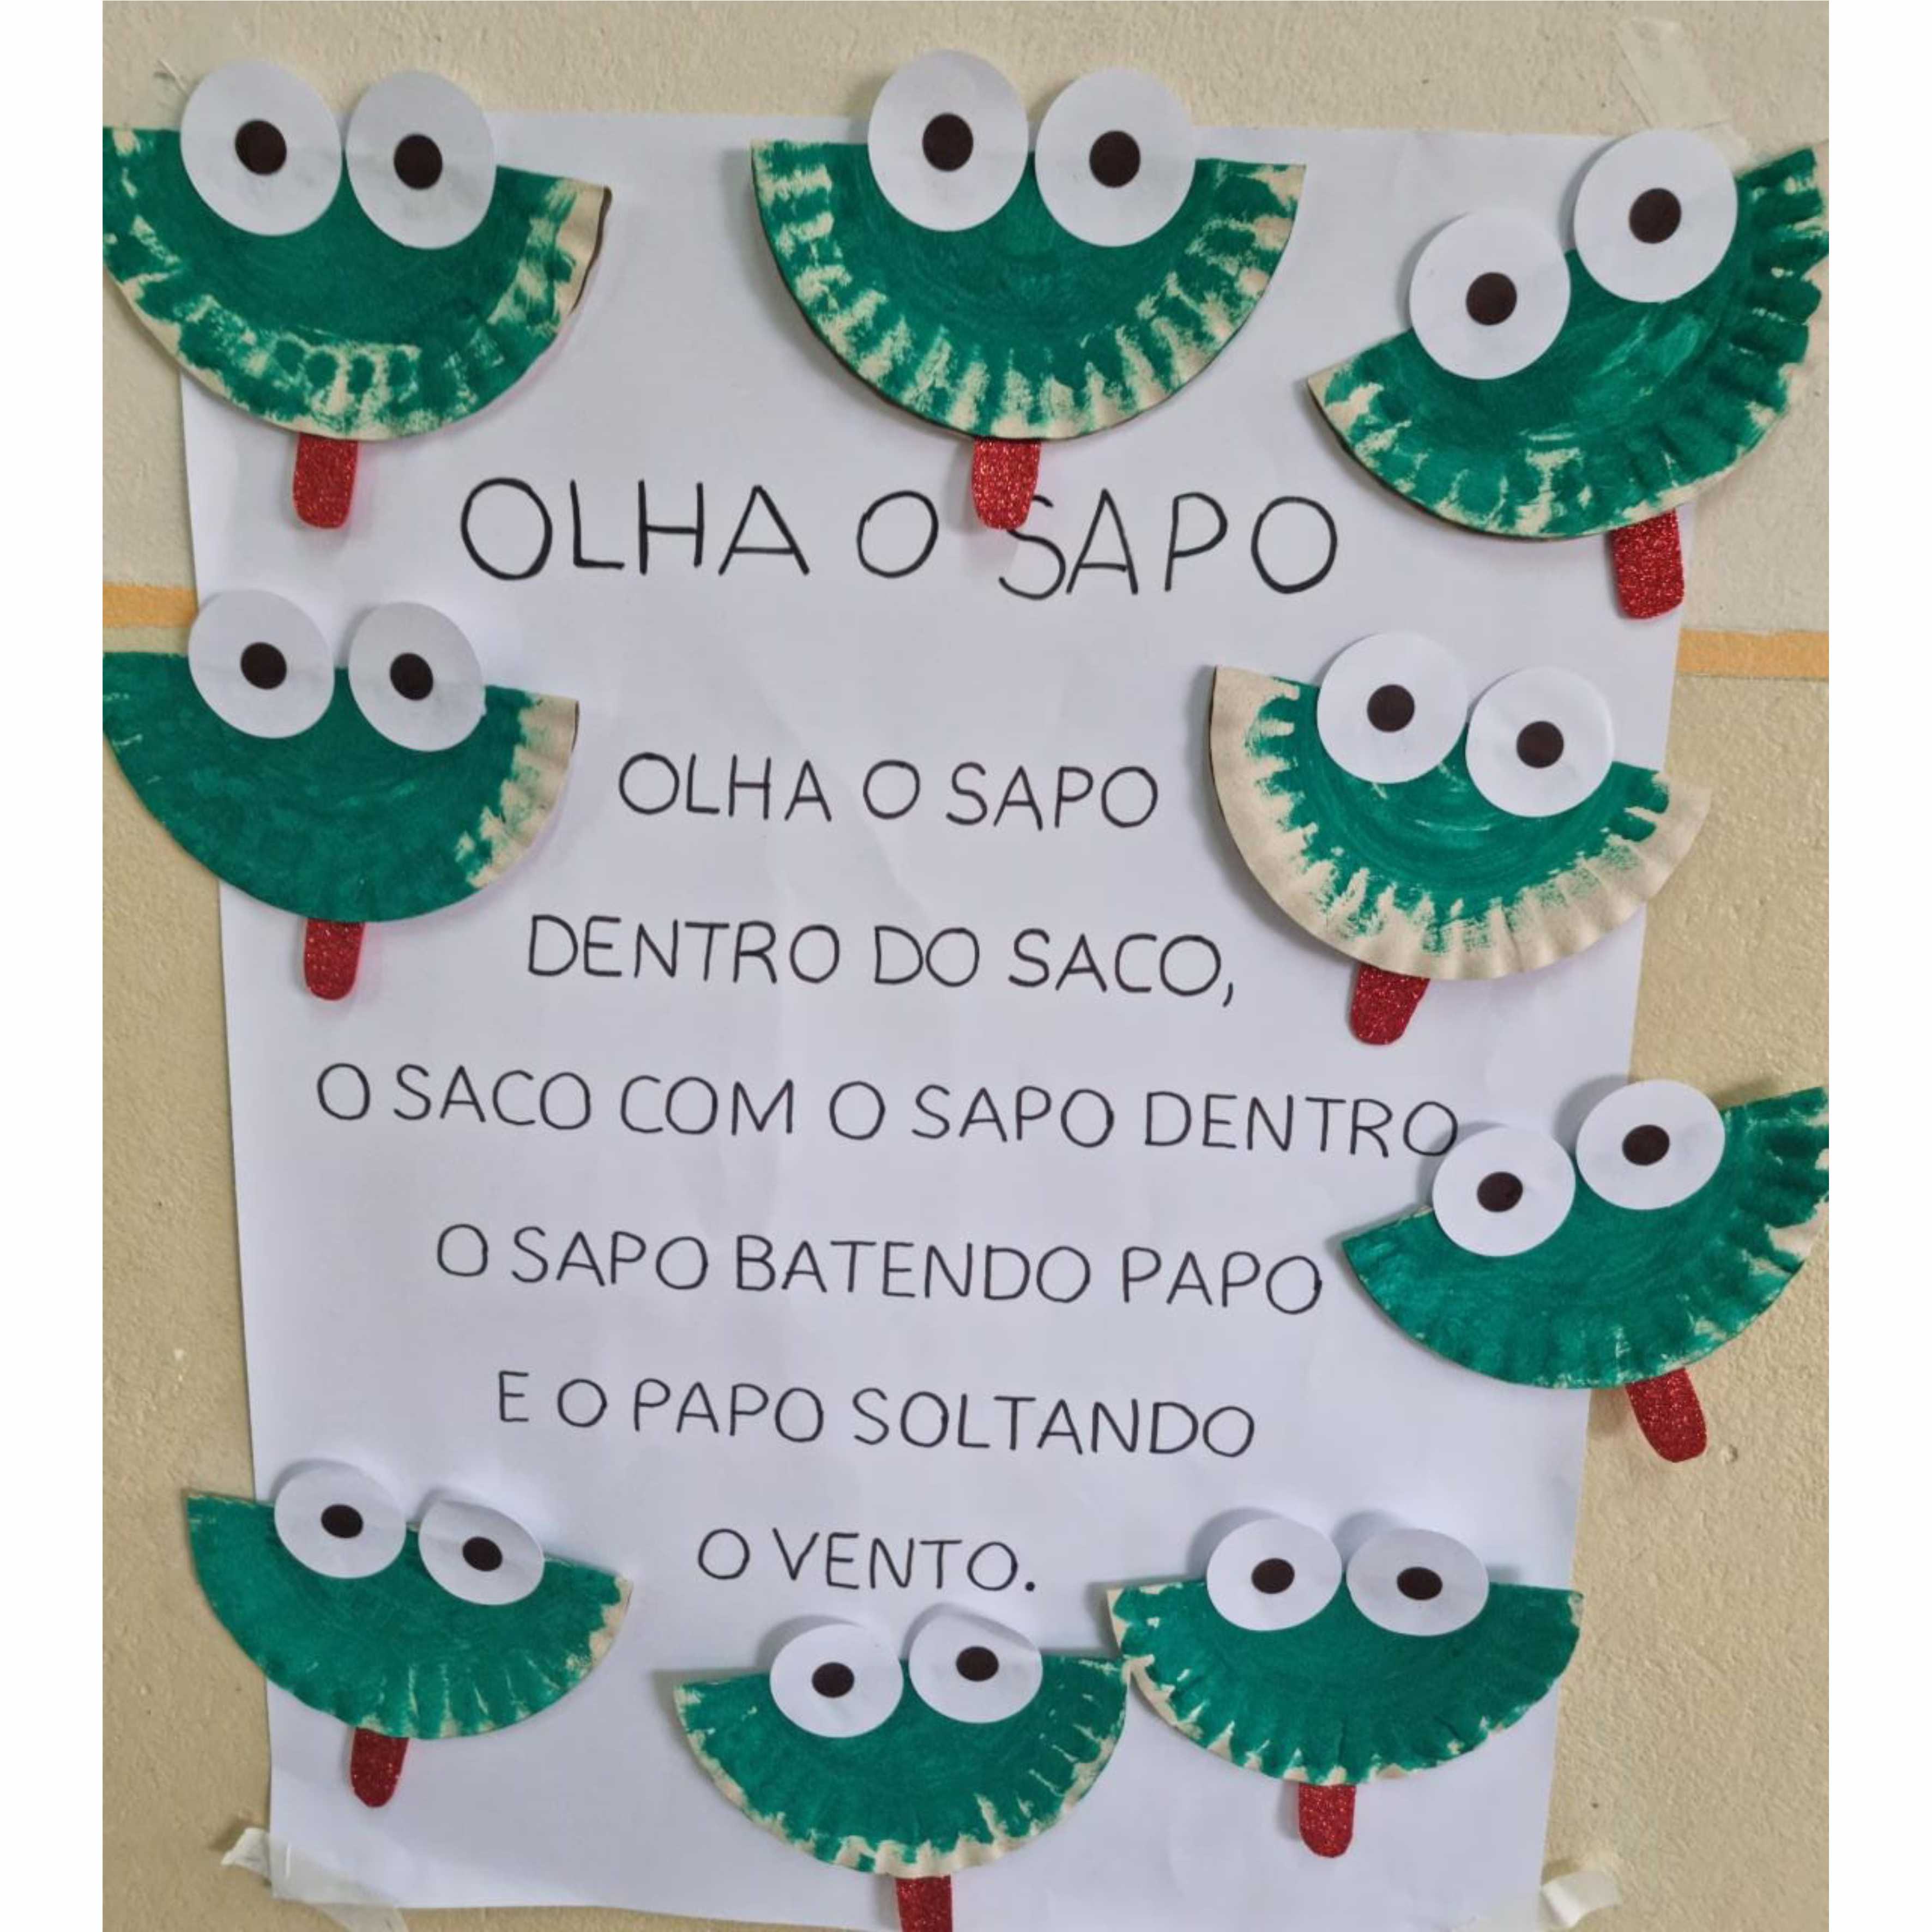 OLHA O SAPO
OLHA O SAPO
DENTRO DO SACO,
O SACO COM O SAPO DENTRO
O SAPO BATENDO PAPO
E O PAPO SOLTANDO
O VENTO.